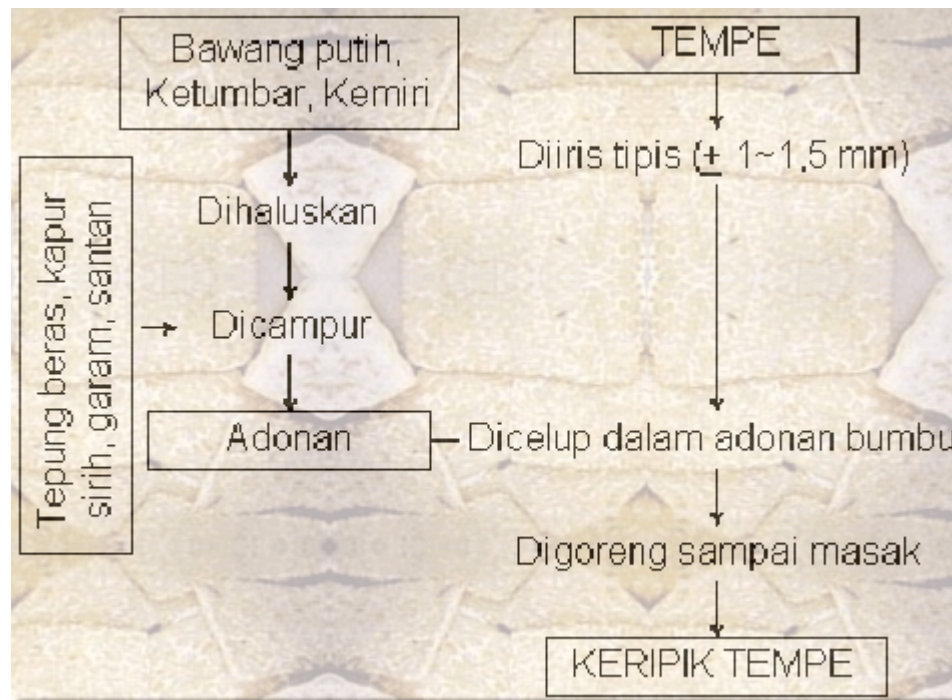 Bawang putih,
Ketumbar, Kemiri
Dihaluskan
Tepung beras, kapur
sirih, garam, santan
Dicampur
Adonan
TEMPE
Diiris tipis (± 1~1,5 mm)
Dicelup dalam adonan bumbu
Digoreng sampai masak
KERIPIK TEMPE